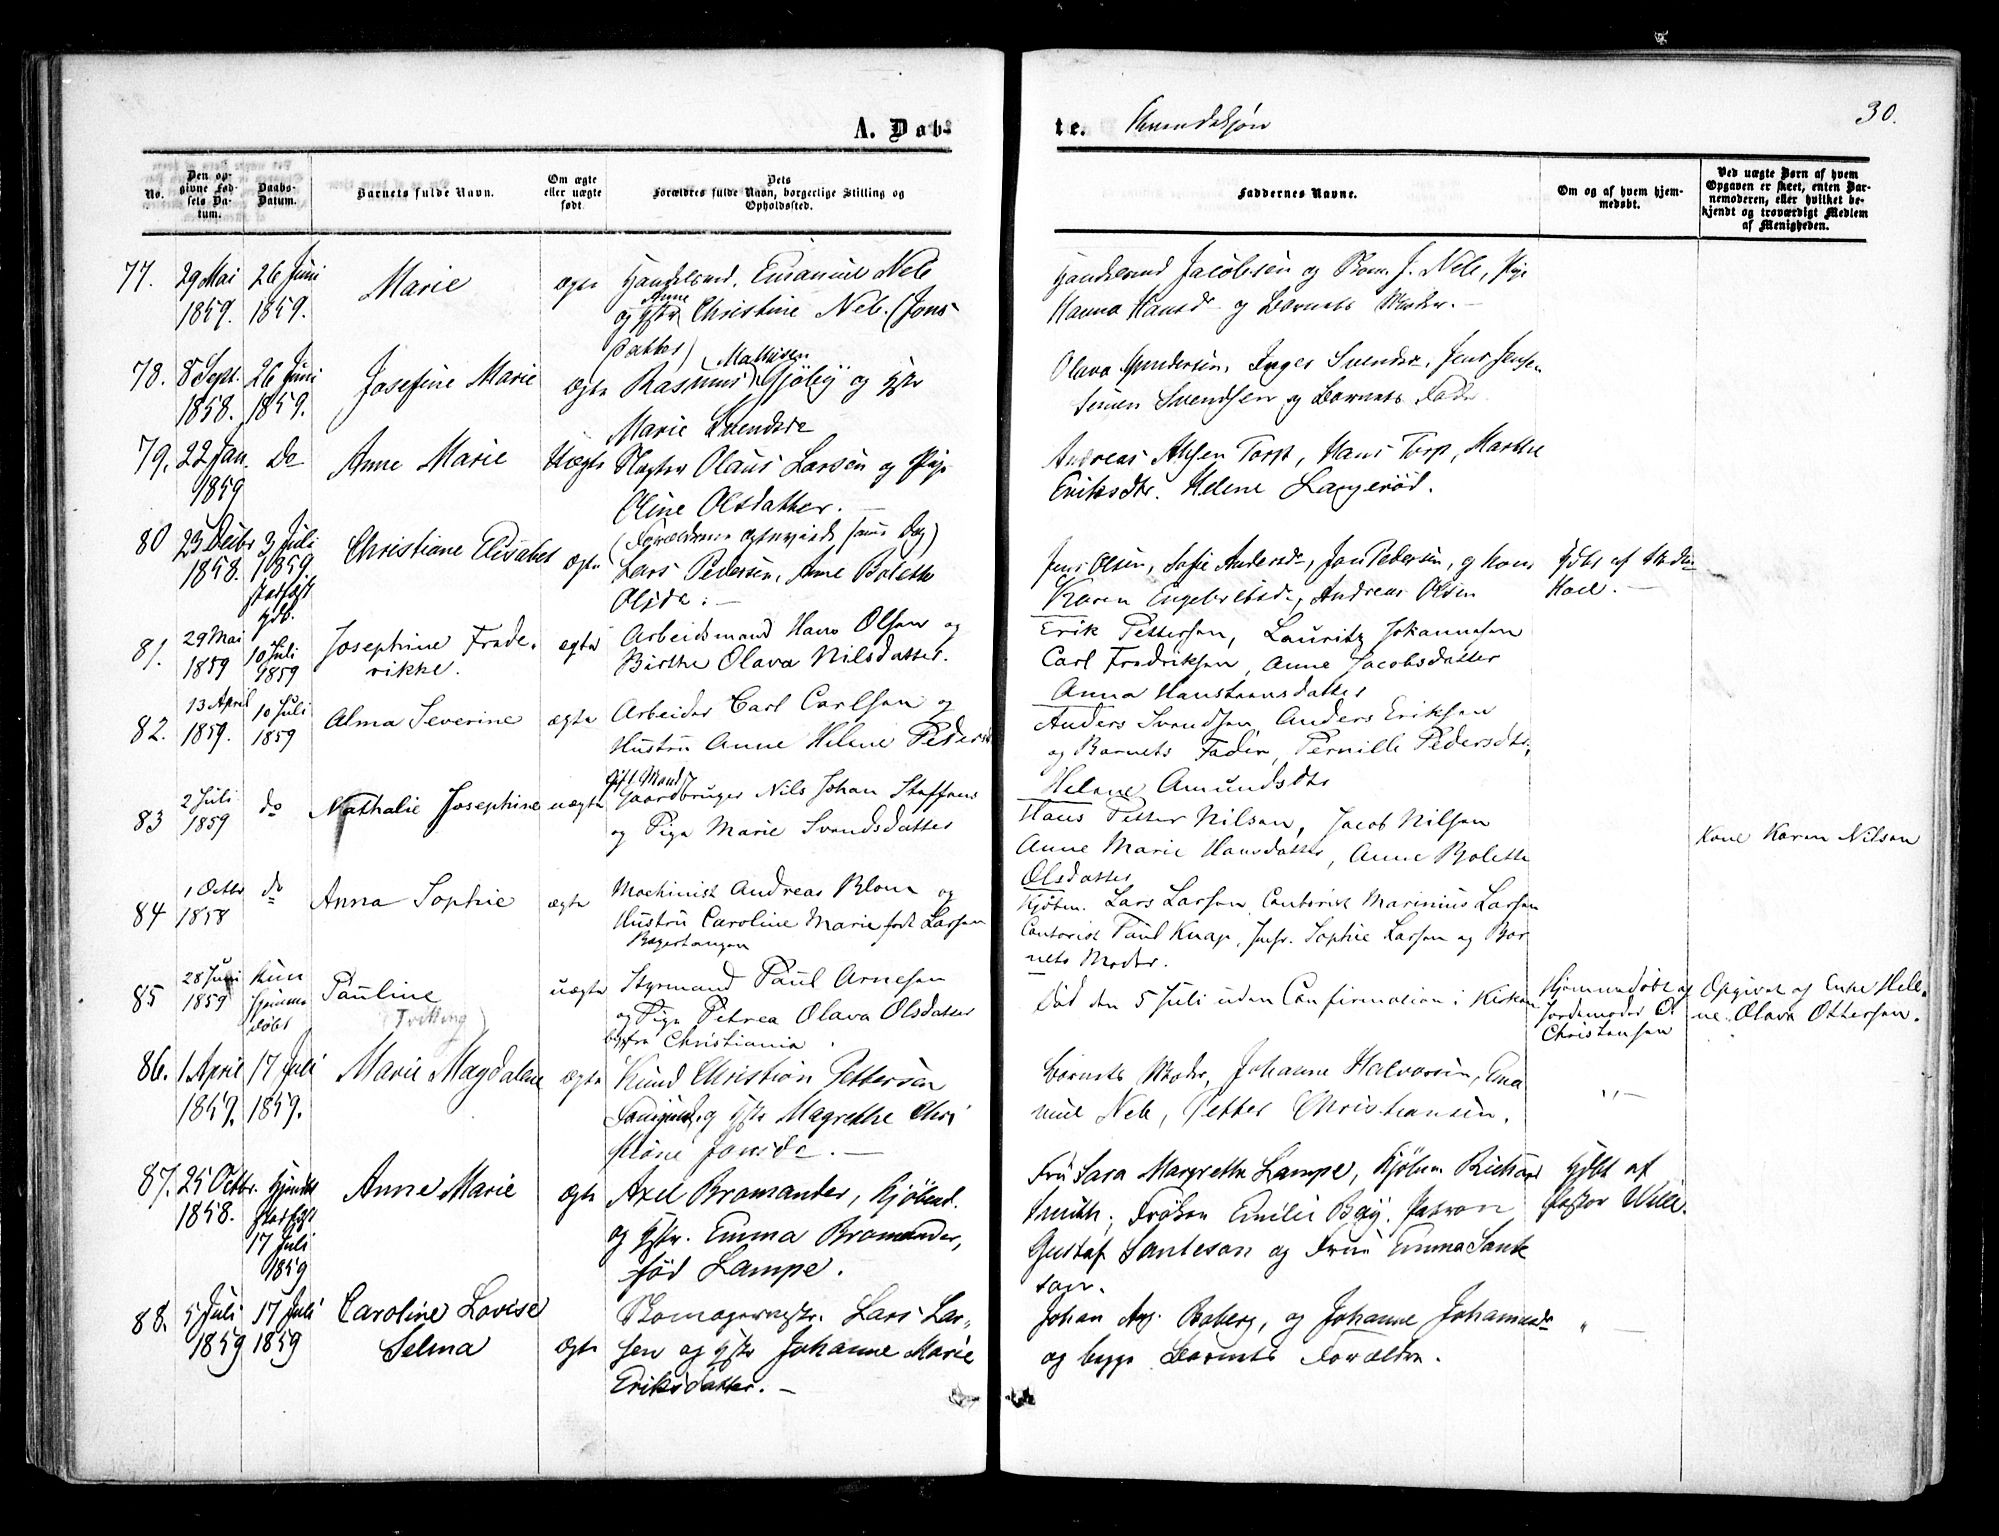 A. Døb-
te. Kvindekjøn
30.
No.
Den op-
givne Fød-
sels Da-
tum.
Daabs-
Datum.
Barnets fulde Navn.
Om ægte
eller uægte
født.
Dets
Forældres fulde Navn, borgerlige Stilling og
Opholdssted.
Faddernes Navne.
Om og af hvem hjem-
medøbt.
Ved uægte Børn af hvem
Opgaven er skeet, enten Bar-
nemoderen, eller hvilket be-
kjendt og troværdigt Medlem
af Menigheden.
77. 29 Mai 26 Juni
1859. 1859.
Marie
ægte
Handelsmd. Emanuel Neb
Anne
og Hstr Christine Neb. (Jons-
datter)
Jacobsen og J. Neb, Pige
Hanna Hansd og Barnets Moder.-
78. 8 Sept. 26 Juni
1858. 1859.
Josefine Marie
ægte
(Mathisen
Rasmus Gjöby og Hstr
Marie Svendsdr
Olava Gundersen, Inger Svendsdr, Jens Jensen
Simen Svendsen og Barnets Fader.
79. 22 Jan. Do
1859
Anne Marie
Uægte
Slagter Olaus Larsen og Pige
Oline Olsdatter. -
Andreas Torp, Hans Torp, Marthe
Eriksdtr. Helene Langeröd.
80 23 Decbr 3 Juli
1858. 1859.
stadfæst
Hdb.
Christiane Elisabet
ægte
(Forældrene ægteviede samme Dag)
Lars Pedersen, Anne Bolette
Olsdr. -
Jens Olsen, Sofie Andersdr, Jon Pedersen, og Kone
Karen Engebretsdr, Andreas Olsen
Hdbt af
81. 29 Mai 10 Juli
1859 1859
Josephine Frede-
rikke.
ægte
Arbeidsmand Hans Olsen og
Birthe Olava Nilsdatter.
Erik Pettersen, Lauritz Johannesen
Carl Fredriksen, Anne Jacobsdatter
Anna Hanstensdatter
82. 13 April 10 Juli
1859. 1859
Alma Severine
ægte
Arbeider Carl Carlsen og
Hustru Anne Helene Pedersd
Anders Svendsen, Anders Eriksen
og Barnets Fader, Pernille Pedersdtr,
Helene Amundsdtr
83 2 Juli do
1859
Nathalie Josephine
uægte
gift Mand
Gaardbruger Nils Johan Staffens
og Pige Marie Svendsdatter
Hans Petter Nilsen, Jacob Nilsen
Anne Marie Hansdatter, Anne Bolette
Olsdatter
Kone Karen Nilsen
84 1 Octbr do
1858
Anna Sophie
ægte
Machinist Andreas Blom og
Hustru Caroline Marie født Larsen
Bagertangen
Kjøbm. Lars Larsen, Contorist Marinius Larsen
Contorist Paul Knap, Jmfr. Sophie Larsen og Bar
nets Moder.
85 28 Juni Kun
1859 hjemme
døbt
Pauline
(Tvilling)
uægte
Styrmand Paul Arnesen
og Pige Petrea Olava Olsdatter
begge fra Christiania.
Død den 5 Juli uden Confirmation i Kirken
Hjemmedøbt af
Jordemoder O.
Christensen
Opgivet af Enke Hele-
ne Olava Ottersen.
86. 1 April 17 Juli
1859. 1859.
Marie Magdalene
ægte
Knud Christian Pettersen
og Hstr Magrethe Chri
stiane Jonsdr. -
Barnets Moder, Johanne Halvorsen, Ema
nuel Neb, Petter Christiansen.
" -
87. 25 Octbr. Hjmdbt
1858. stadfæst
17 Juli
1859
Anne Marie
ægte
Axel Bromander, Kjöbmd.
og Hstr. Emma Bromander,
född Lampe.
Fru Sara Margrethe Lampe, Kjöbm Richard
Smith, Fröken Emilie Bay, Patron
Gustaf Santeson og Fru Emma Sante
son.
Hjdbt af
Pastor Wille.
88. 5 Juli 17 Juli
1859 1859
Caroline Lovise
Selma
ægte
Skomagermstr. Lars Lar-
sen og Hstr Johanne Marie
Eriksdatter. -
Johan Aug. Boberg, og Johanne Johannesdr
og begge Barnets Forældre.
" -